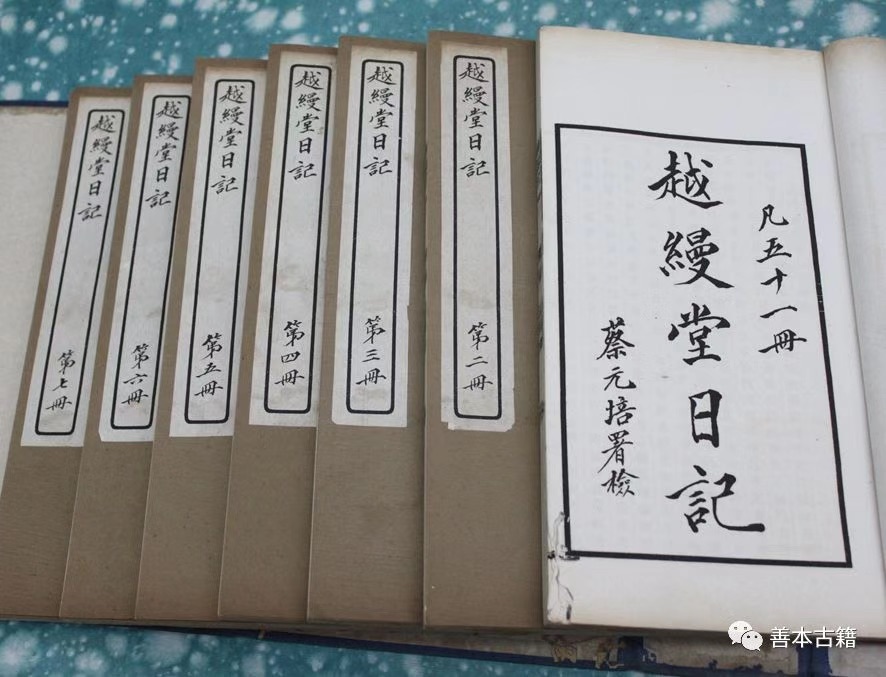 凡五十一冊
越縵堂日記
蔡元培署檢
越縵堂日記
第二冊
越縵堂日記
第三冊
越縵堂日記
第四冊
越縵堂日記
第五冊
越縵堂日記
第六冊
越縵堂日記
第七冊
善本古籍